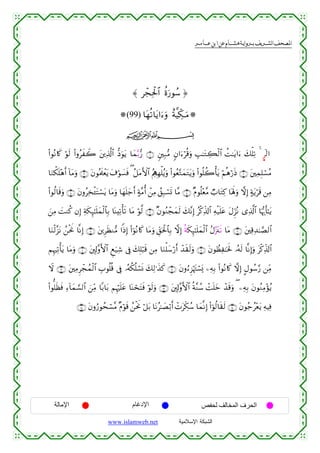 المصحف الشريف برواية هشام عن ابن عامر
﴿ سُورَةُ ٱلْحِجْرِ ﴾
* مَكِّيَّةٌ وَءَايَاتُهَا (99) *
بِسْمِ ٱللَّهِ ٱلرَّحْمَٰنِ ٱلرَّحِيمِ
الٓر تِلْكَ ءَايَٰتُ ٱلْكِتَٰبِ وَقُرْءَانٍ مُّبِينٍ ۝ رُّبَّمَا يَوَدُّ ٱلَّذِينَ كَفَرُوا۟ لَوْ كَانُوا۟
مُسْلِمِينَ ۝ ذَرْهُمْ يَأْكُلُوا۟ وَيَتَمَتَّعُوا۟ وَيُلْهِهِمُ ٱلْأَمَلُ فَسَوْفَ يَعْلَمُونَ ۝ وَمَآ أَهْلَكْنَا
مِن قَرْيَةٍ إِلَّا وَلَهَا كِتَابٌ مَّعْلُومٌ ۝ مَّا تَسْبِقُ مِنْ أُمَّةٍ أَجَلَهَا وَمَا يَسْتَـْٔخِرُونَ ۝ وَقَالُوا۟
يَٰٓأَيُّهَا ٱلَّذِى نُزِّلَ عَلَيْهِ ٱلذِّكْرُ إِنَّكَ لَمَجْنُونٌ ۝ لَّوْ مَا تَأْتِينَا بِٱلْمَلَٰٓئِكَةِ إِن كُنتَ مِنَ
ٱلصَّٰدِقِينَ ۝ مَا تَنَزَّلُ ٱلْمَلَٰٓئِكَةُ إِلَّا بِٱلْحَقِّ وَمَا كَانُوٓا۟ إِذًا مُّنظَرِينَ ۝ إِنَّا نَحْنُ نَزَّلْنَا
ٱلذِّكْرَ وَإِنَّا لَهُۥ لَحَٰفِظُونَ ۝ وَلَقَدْ أَرْسَلْنَا مِن قَبْلِكَ فِى شِيَعِ ٱلْأَوَّلِينَ ۝ وَمَا يَأْتِيهِم
مِّن رَّسُولٍ إِلَّا كَانُوا۟ بِهِۦ يَسْتَهْزِءُونَ ۝ كَذَٰلِكَ نَسْلُكُهُۥ فِى قُلُوبِ ٱلْمُجْرِمِينَ ۝ لَا
يُؤْمِنُونَ بِهِۦ وَقَدْ خَلَتْ سُنَّةُ ٱلْأَوَّلِينَ ۝ وَلَوْ فَتَحْنَا عَلَيْهِم بَابًا مِّنَ ٱلسَّمَآءِ فَظَلُّوا۟
فِيهِ يَعْرُجُونَ ۝ لَقَالُوٓا۟ إِنَّمَا سُكِّرَتْ أَبْصَٰرُنَا بَلْ نَحْنُ قَوْمٌ مَّسْحُورُونَ ۝
الحرف المخالف لحفص الإدغام الإمالة
الشبكة الإسلامية www.islamweb.net